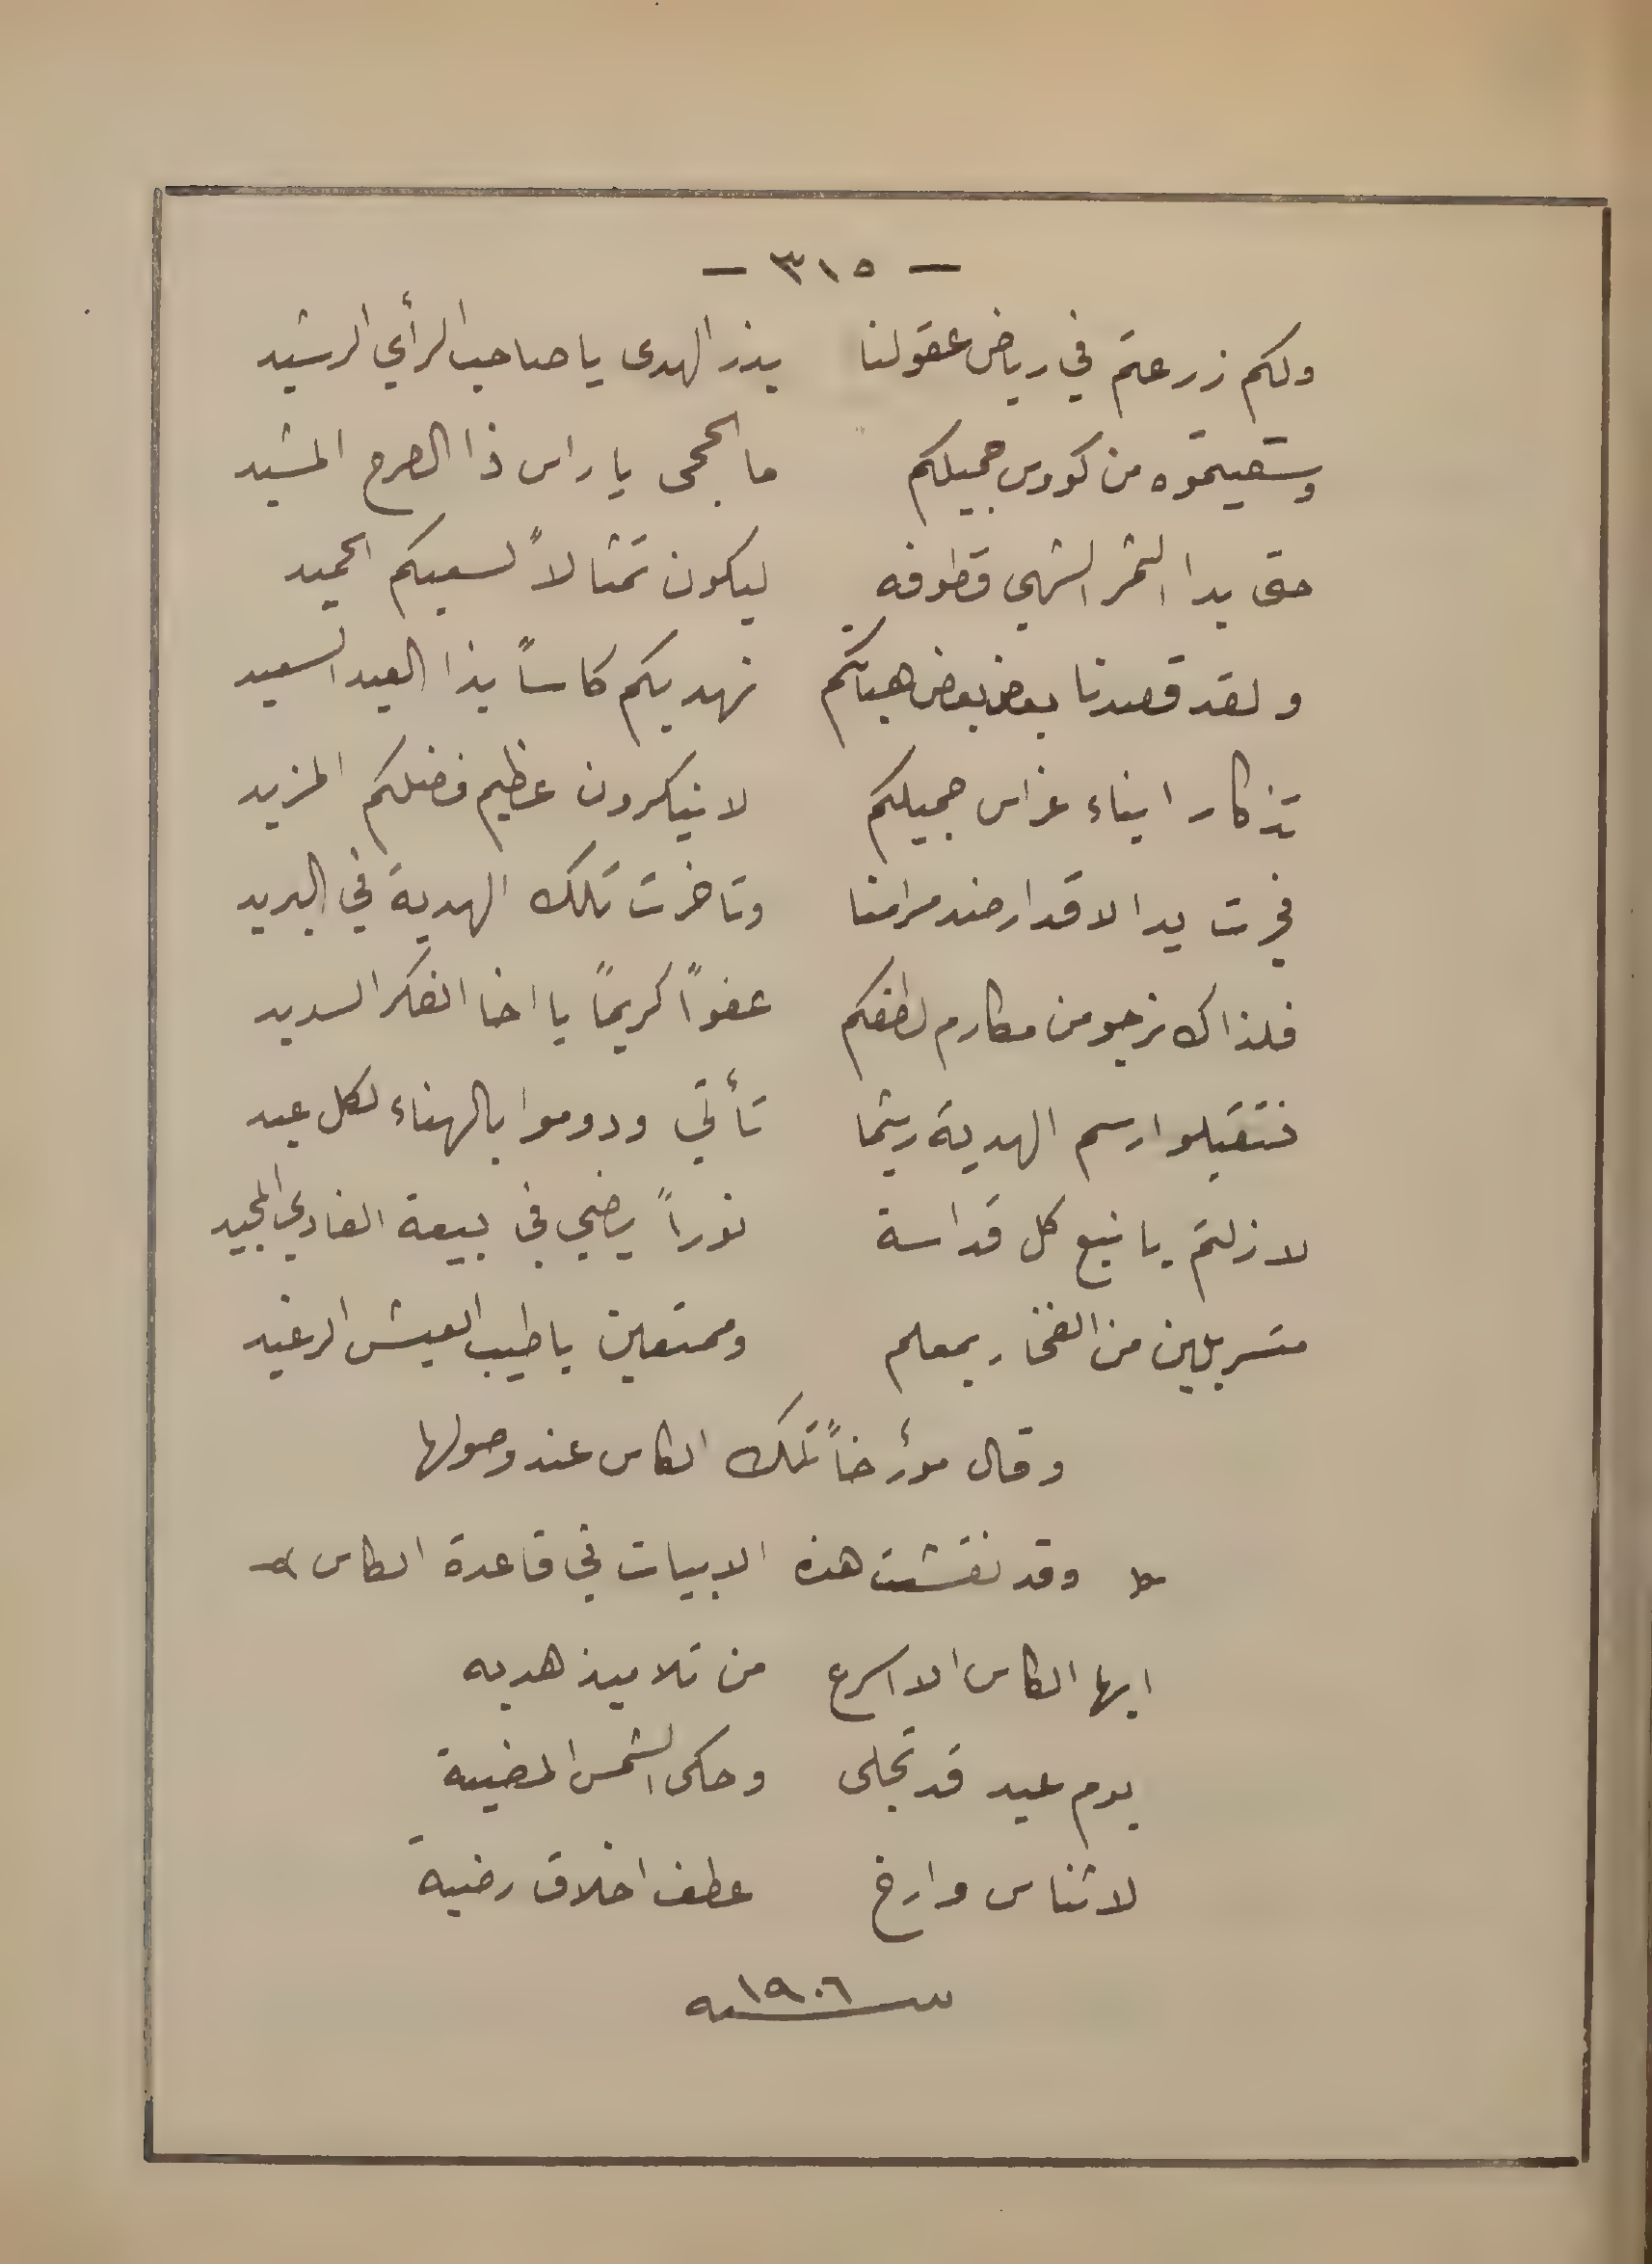 — ٣١٥ —
ولكم زرعتم في رياض عقولنا بذر الهدى يا صاحب الرأي الرشيد
وسقيتموه من كووس جميلكم ما الحجى يا راس ذا الصرح المشيد
حتى بدا الثمر الشهي قطوفه ليكون تمثالاً لسعيكم الحميد
ولقد قصدنا بعض بعض هباتكم نهديكم كاساً بذا العيد السعيد
تذكار ابناء غراس جميلكم لا ينكرون عظيم فضلكم المزيد
فجرت يد الاقدار ضد مرامنا وتاخرت تلك الهدية في البريد
فلذاك نرجو من مكارم لطفكم عفواً كريماً يا اخا الفكر السديد
فتقبلوا رسم الهدية ريثما تأتي ودوموا بالهناء لكل عيد
لا زلتم يا نبع كل قداسة نوراً يضي في بيعة الفادي المجيد
متسربلين من الفخار بمعلم وممتعين باطيب العيش الرغيد
وقال مؤرخاً تلك الكاس عند وصولها
وقد نقشت هذه الابيات في قاعدة الكاس
ايها الكاس الا اسرع من تلاميذ هديه
يوم عيد قد تجلى وحكى الشمس المضيية
لا تناس وارخ عطف اخلاق رضية
سنه ١٩٠٦